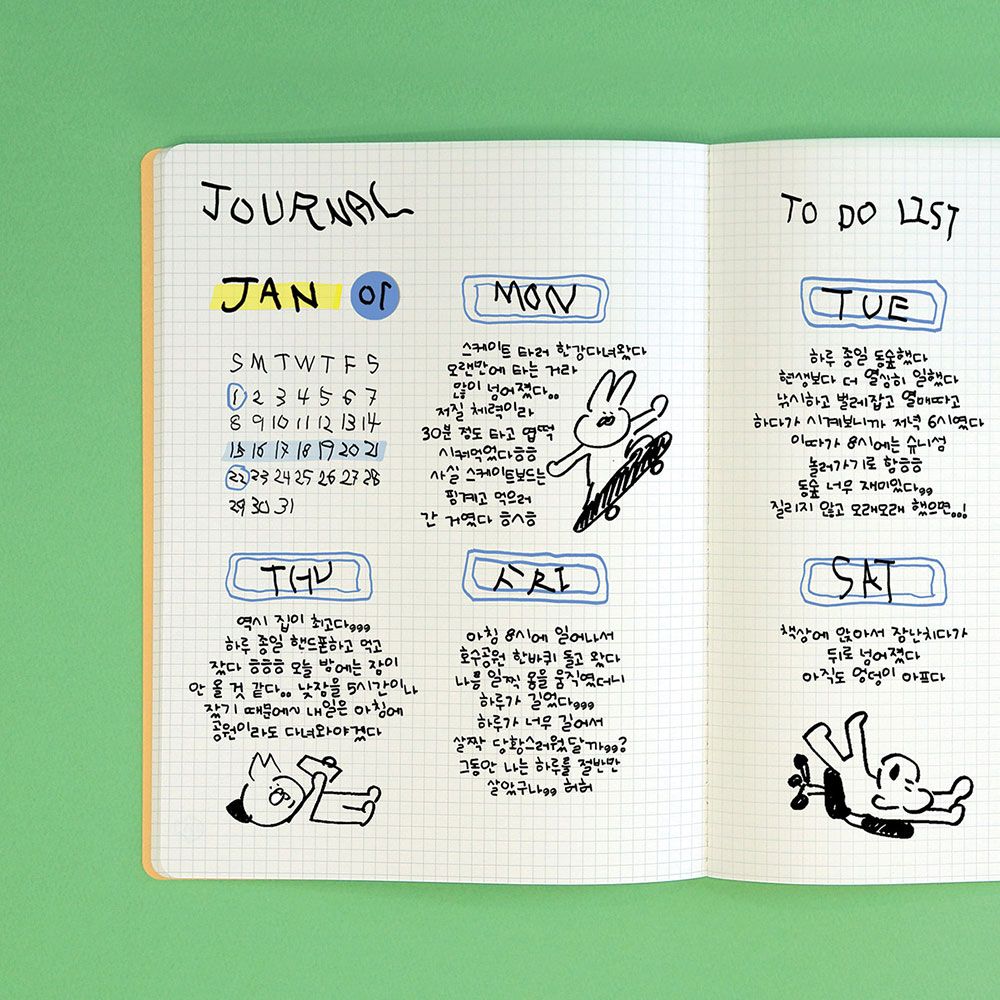 JOURNAL
JAN 01
S M T W T F S
1 2 3 4 5 6 7
8 9 10 11 12 13 14
15 16 17 18 19 20 21
22 23 24 25 26 27 28
29 30 31
MON
스케이트 타러 한강다녀왔다
오랜만에 타는 거라
많이 넘어졌다..
저질 체력이라
30분 정도 타고 엽떡
시켜먹었다ㅎㅎ
사실 스케이트보드는
핑계고 먹으러
간 거였다 ㅎㅅㅎ
THU
역시 집이 최고다,,,
하루 종일 핸드폰하고 먹고
잤다 ㅎㅎㅎ 오늘 밤에는 잠이
안 올 것 같다.. 낮잠을 5시간이나
잤기 때문에.. 내일은 아침에
공원이라도 다녀와야겠다
FRI
아침 8시에 일어나서
호수공원 한바퀴 돌고 왔다
나름 일찍 몸을 움직였더니
하루가 길었다,,,
하루가 너무 길어서
살짝 당황스러웠달까,,?
그동안 나는 하루를 절반만
살았구나,, 허허
TO DO LIST
TUE
하루 종일 동숲했다
현생보다 더 열심히 일했다
낚시하고 벌레잡고 열매따고
하다가 시계보니까 저녁 6시였다
이따가 8시에는 슈니섬
놀러가기로 함ㅎㅎ
동숲 너무 재미있다,,
질리지 않고 오래오래 했으면,,!
SAT
책상에 앉아서 장난치다가
뒤로 넘어졌다
아직도 엉덩이 아프다